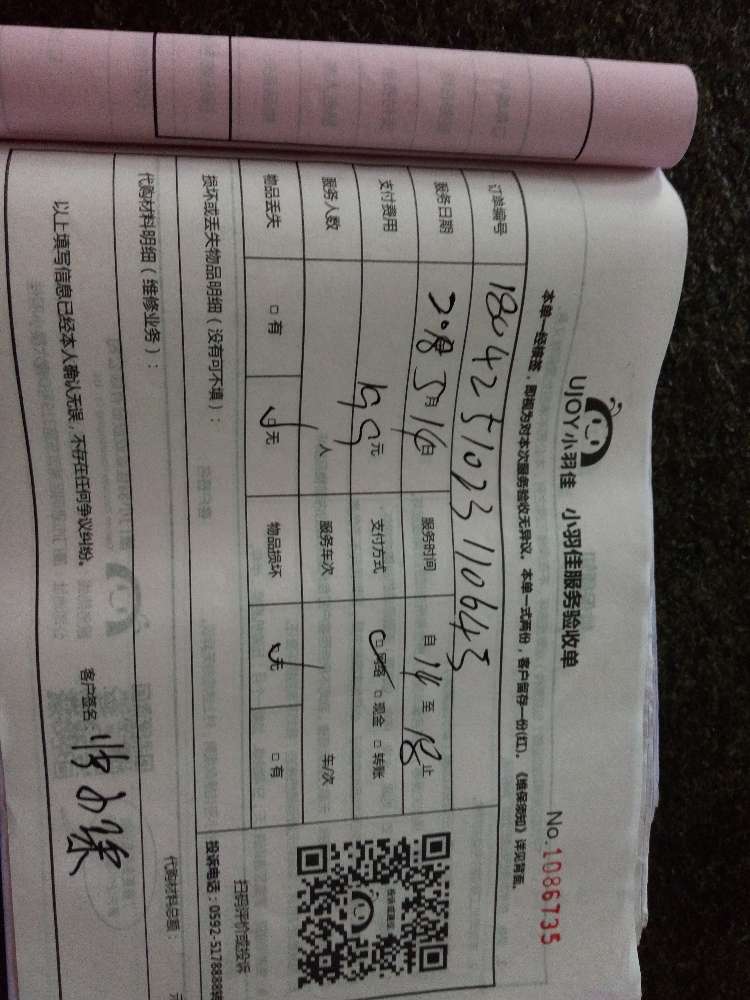 UJOY小羽佳 小羽佳服务验收单
No.1086735
本单一经接签，即视为对本次服务验收无异议。本单一式两份，客户留存一份(红)。《维保须知》详见背面。
订单编号 1804251023110643
服务日期 2018 5月16日 服务时间 自14至18止
支付费用 199元 支付方式 □网络 □现金 □转账
服务人数 人 服务车次 车/次
物品丢失 □有 □无 物品损坏 □无 □有
损坏或丢失物品明细（没有可不填）：
扫码评价或投诉
投诉电话：0592-5178888转
代购材料明细（维修业务）：
代购材料总额： 元
以上填写信息已经本人确认无误，不存在任何争议纠纷。
客户签名：